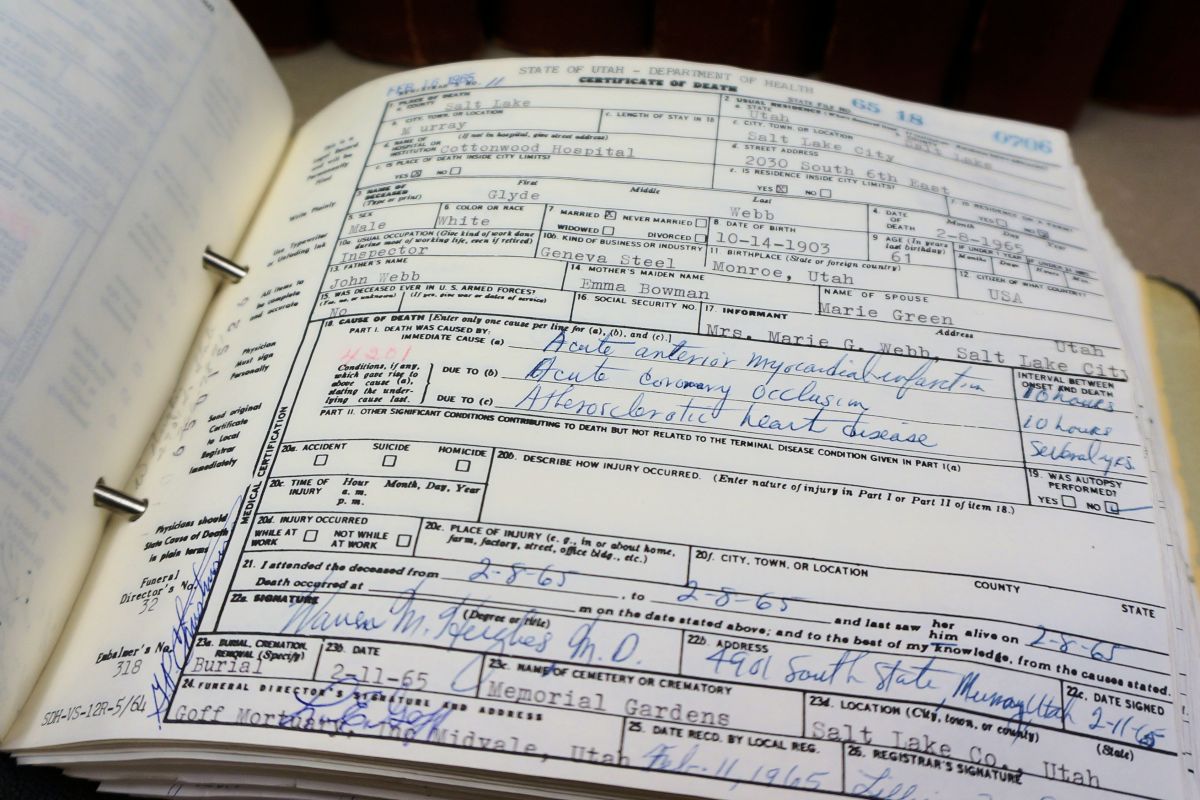 STATE OF UTAH - DEPARTMENT OF HEALTH
CERTIFICATE OF DEATH
FEB 16 1965
REGISTRAR'S NO. 11
STATE FILE NO. 65 18 0706
1. PLACE OF DEATH
a. COUNTY Salt Lake
2. USUAL RESIDENCE
a. STATE Utah
Salt Lake
b. CITY, TOWN, OR LOCATION
c. LENGTH OF STAY IN 1b
Murray
c. CITY, TOWN, OR LOCATION
Salt Lake City
d. NAME OF HOSPITAL OR INSTITUTION (If not in hospital, give street address)
Cottonwood Hospital
d. STREET ADDRESS
2030 South 6th East
e. IS PLACE OF DEATH INSIDE CITY LIMITS?
YES ☒ NO ☐
e. IS RESIDENCE INSIDE CITY LIMITS?
YES ☒ NO ☐
f. IS RESIDENCE ON A FARM?
YES ☐ NO ☒
3. NAME OF DECEASED (Type or print)
First Middle Last
Glyde Webb
4. DATE OF DEATH Month Day Year
2-8-1965
5. SEX
Male
6. COLOR OR RACE
White
7 MARRIED ☒ NEVER MARRIED ☐
WIDOWED ☐ DIVORCED ☐
8 DATE OF BIRTH
10-14-1903
9 AGE (In years last birthday)
61
IF UNDER 1 YEAR
Months Days
Hours Min.
10a. USUAL OCCUPATION (Give kind of work done during most of working life, even if retired)
Inspector
10b. KIND OF BUSINESS OR INDUSTRY
Geneva Steel
11 BIRTHPLACE (State or foreign country)
Monroe, Utah
12 CITIZEN OF WHAT COUNTRY?
USA
13. FATHER'S NAME
John Webb
14 MOTHER'S MAIDEN NAME
Emma Bowman
NAME OF SPOUSE
Marie Green
15. WAS DECEASED EVER IN U.S. ARMED FORCES?
(Yes, no, or unknown) (If yes, give war or dates of service)
No
16. SOCIAL SECURITY NO.
17. INFORMANT
Address
Mrs. Marie G. Webb, Salt Lake City
Utah
18. CAUSE OF DEATH [Enter only one cause per line for (a), (b), and (c).]
PART I. DEATH WAS CAUSED BY:
IMMEDIATE CAUSE (a) Acute anterior myocardial infarction
INTERVAL BETWEEN ONSET AND DEATH
10 hours
4201
Conditions, if any,
which gave rise to
above cause (a),
stating the under-
lying cause last.
DUE TO (b) Acute coronary occlusion
10 hours
DUE TO (c) Atherosclerotic heart disease
Several yrs.
PART II. OTHER SIGNIFICANT CONDITIONS CONTRIBUTING TO DEATH BUT NOT RELATED TO THE TERMINAL DISEASE CONDITION GIVEN IN PART I(a)
19. WAS AUTOPSY PERFORMED?
YES ☐ NO ☑
MEDICAL CERTIFICATION
20a. ACCIDENT SUICIDE HOMICIDE
☐ ☐ ☐
20b. DESCRIBE HOW INJURY OCCURRED. (Enter nature of injury in Part I or Part II of item 18.)
20c. TIME OF INJURY Hour Month, Day, Year
a. m.
p. m.
20d. INJURY OCCURRED
WHILE AT WORK ☐ NOT WHILE AT WORK ☐
20e. PLACE OF INJURY (e. g., in or about home, farm, factory, street, office bldg., etc.)
20f. CITY, TOWN, OR LOCATION COUNTY STATE
21. I attended the deceased from 2-8-65, to 2-8-65 and last saw her him alive on 2-8-65
Death occurred at m on the date stated above; and to the best of my knowledge, from the causes stated.
22a. SIGNATURE (Degree or title)
Warren M. Hughes M.D.
22b. ADDRESS
4901 South State, Murray Utah
22c. DATE SIGNED
2-11-65
23a. BURIAL, CREMATION, REMOVAL (Specify)
Burial
23b. DATE
2-11-65
23c. NAME OF CEMETERY OR CREMATORY
Memorial Gardens
23d. LOCATION (City, town, or county) (State)
Salt Lake Co., Utah
24. FUNERAL DIRECTOR'S SIGNATURE AND ADDRESS
Goff Mortuary, Inc Midvale, Utah
25. DATE RECD. BY LOCAL REG.
Feb. 11, 1965
26. REGISTRAR'S SIGNATURE
Write Plainly
Use Typewriter
or Unfading Ink
All items to
be complete
and accurate
Physician
Must sign
Personally
Send original
Certificate
to Local
Registrar
Immediately
Physicians should
State Cause of Death
in plain terms
Funeral
Director's No.
32
Embalmer's No.
318
SDH-VS-12R-5/64